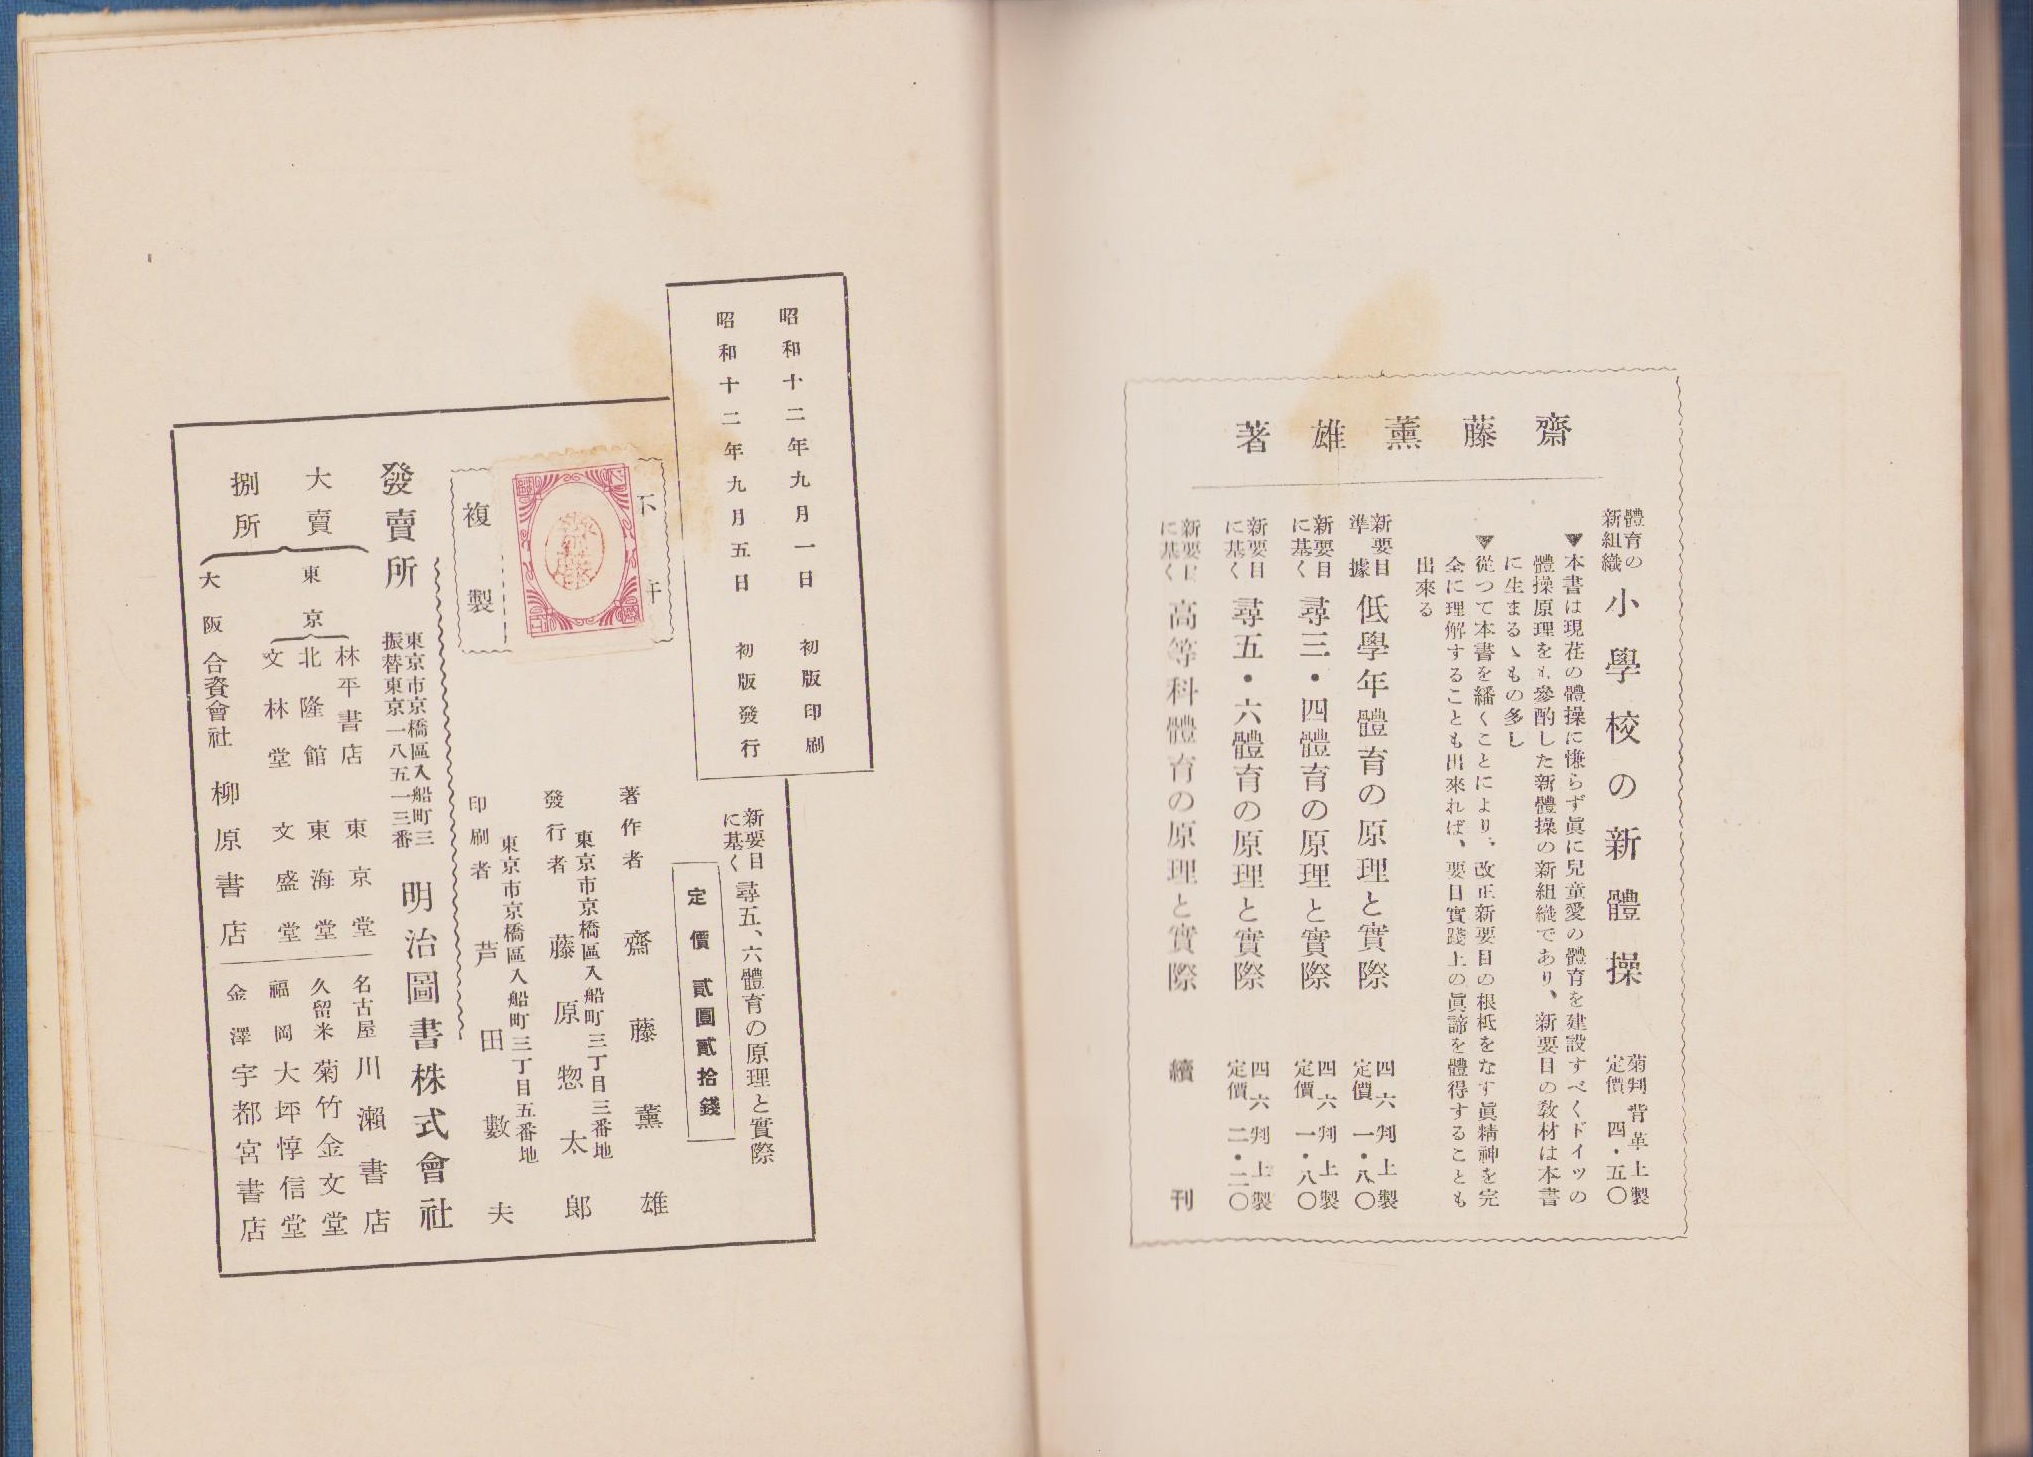 齋藤薫雄著
體育の
新組織
小學校の新體操
菊判背革上製
定價四・五〇
▼本書は現在の體操に慊らず眞に兒童愛の體育を建設すべくドイツの
體操原理をも參酌した新體操の新組織であり、新要目の敎材は本書
に生まるゝもの多し
▼從つて本書を繙くことにより、改正新要目の根柢をなす眞精神を完
全に理解することも出來れば、要目實踐上の眞諦を體得することも
出來る
新要目
準據
低學年體育の原理と實際
四六判上製
定價一・八〇
新要目
に基く
尋三・四體育の原理と實際
四六判上製
定價一・八〇
新要目
に基く
尋五・六體育の原理と實際
四六判上製
定價二・二〇
新要目
に基く
高等科體育の原理と實際
續刊
昭和十二年九月一日 初版印刷
昭和十二年九月五日 初版發行
新要目
に基く
尋五、六體育の原理と實際
定價貳圓貳拾錢
不許
複製
著作者 齋藤薫雄
東京市京橋區入船町三丁目三番地
發行者 藤原惣太郎
東京市京橋區入船町三丁目五番地
印刷者 芦田數夫
發賣所
東京市京橋區入船町三
振替東京一八五一三番
明治圖書株式會社
大賣
捌所
東京
林平書店 東京堂
北隆館 東海堂
文林堂 文盛堂
大阪 合資會社 柳原書店
名古屋 川瀨書店
久留米 菊竹金文堂
福岡 大坪惇信堂
金澤 宇都宮書店